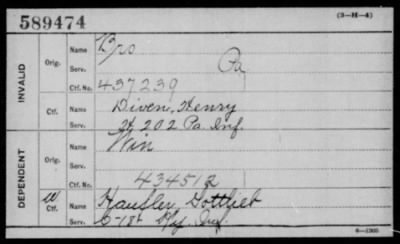 589474
(3-H-4)
INVALID
Orig.
Name
Bro
Serv.
Pa
Ctf. No.
437239
Ctf.
Name
Diven, Henry
Serv.
H 202 Pa. Inf.
DEPENDENT
Orig.
Name
Win
Serv.
Ctf. No.
434512
W
Ctf.
Name
Hausler, Gottlieb
Serv.
C-18t Ky. Inf.
6—1305